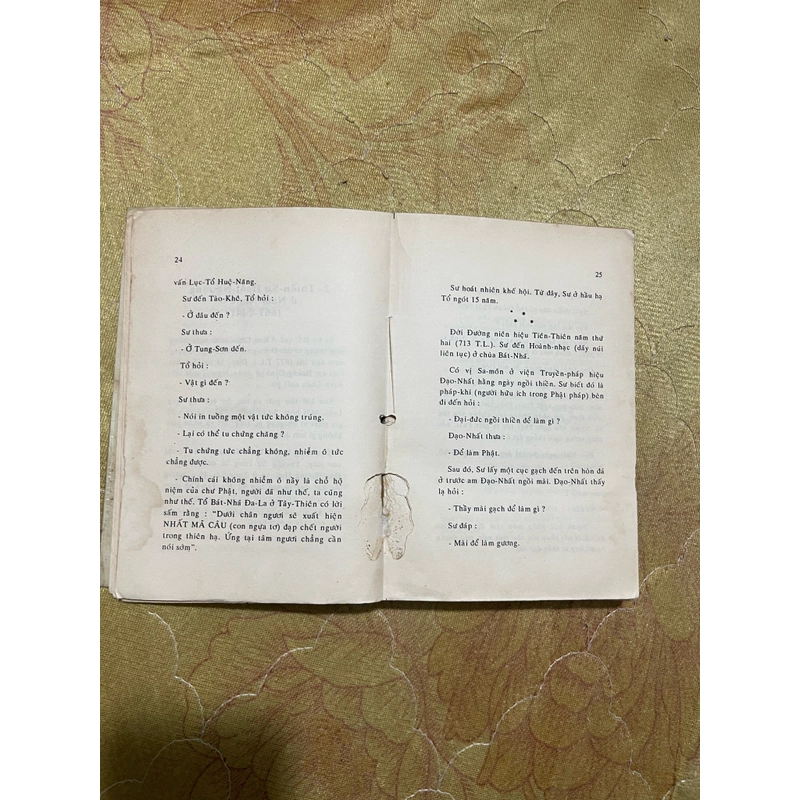 24
vấn Lục-Tổ Huệ-Năng.
Sư đến Tào-Khê, Tổ hỏi :
- Ở đâu đến ?
Sư thưa :
- Ở Tung-Sơn đến.
Tổ hỏi :
- Vật gì đến ?
Sư thưa :
- Nói in tuồng một vật tức không trúng.
- Lại có thể tu chứng chăng ?
- Tu chứng tức chẳng không, nhiễm ô tức
chẳng được.
- Chính cái không nhiễm ô nầy là chỗ hộ
niệm của chư Phật, ngươi đã như thế, ta cũng
như thế. Tổ Bát-Nhã Đa-La ở Tây-Thiên có lời
sấm rằng : "Dưới chân ngươi sẽ xuất hiện
NHẤT MÃ CÂU (con ngựa tơ) đạp chết người
trong thiên hạ. Ứng tại tâm ngươi chẳng cần
nói sớm".
25
Sư hoát nhiên khế hội. Từ đây, Sư ở hầu hạ
Tổ ngót 15 năm.
* * *
Đời Đường niên hiệu Tiên-Thiên năm thứ
hai (713 T.L.). Sư đến Hoành-nhạc (dãy núi
liên tục) ở chùa Bát-Nhã.
Có vị Sa-môn ở viện Truyền-pháp hiệu
Đạo-Nhất hằng ngày ngồi thiền. Sư biết đó là
pháp-khí (người hữu ích trong Phật pháp) bèn
đi đến hỏi :
- Đại-đức ngồi thiền để làm gì ?
Đạo-Nhất thưa :
- Để làm Phật.
Sau đó, Sư lấy một cục gạch đến trên hòn đá
ở trước am Đạo-Nhất ngồi mài. Đạo-Nhất thấy
lạ hỏi :
- Thầy mài gạch để làm gì ?
Sư đáp :
- Mài để làm gương.